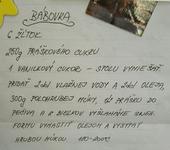 BÁBOVKA
6 ŽĹTOK
250g PRÁŠKOVÉHO CUKRU
1 VANILKOVÝ CUKOR - SPOLU VYMIEŠAŤ
PRIDAŤ 2dcl VLAŽNEJ VODY A 2dcl OLEJA,
300g POLOHRUBEJ MÚKY, 1/2 PRÁŠKU DO
PEČIVA A Z BIELKOV VYŠĽAHANÝ SNEH.
FORMU VYMASTIŤ OLEJOM A VYSYPAŤ
HRUBOU MÚKOU